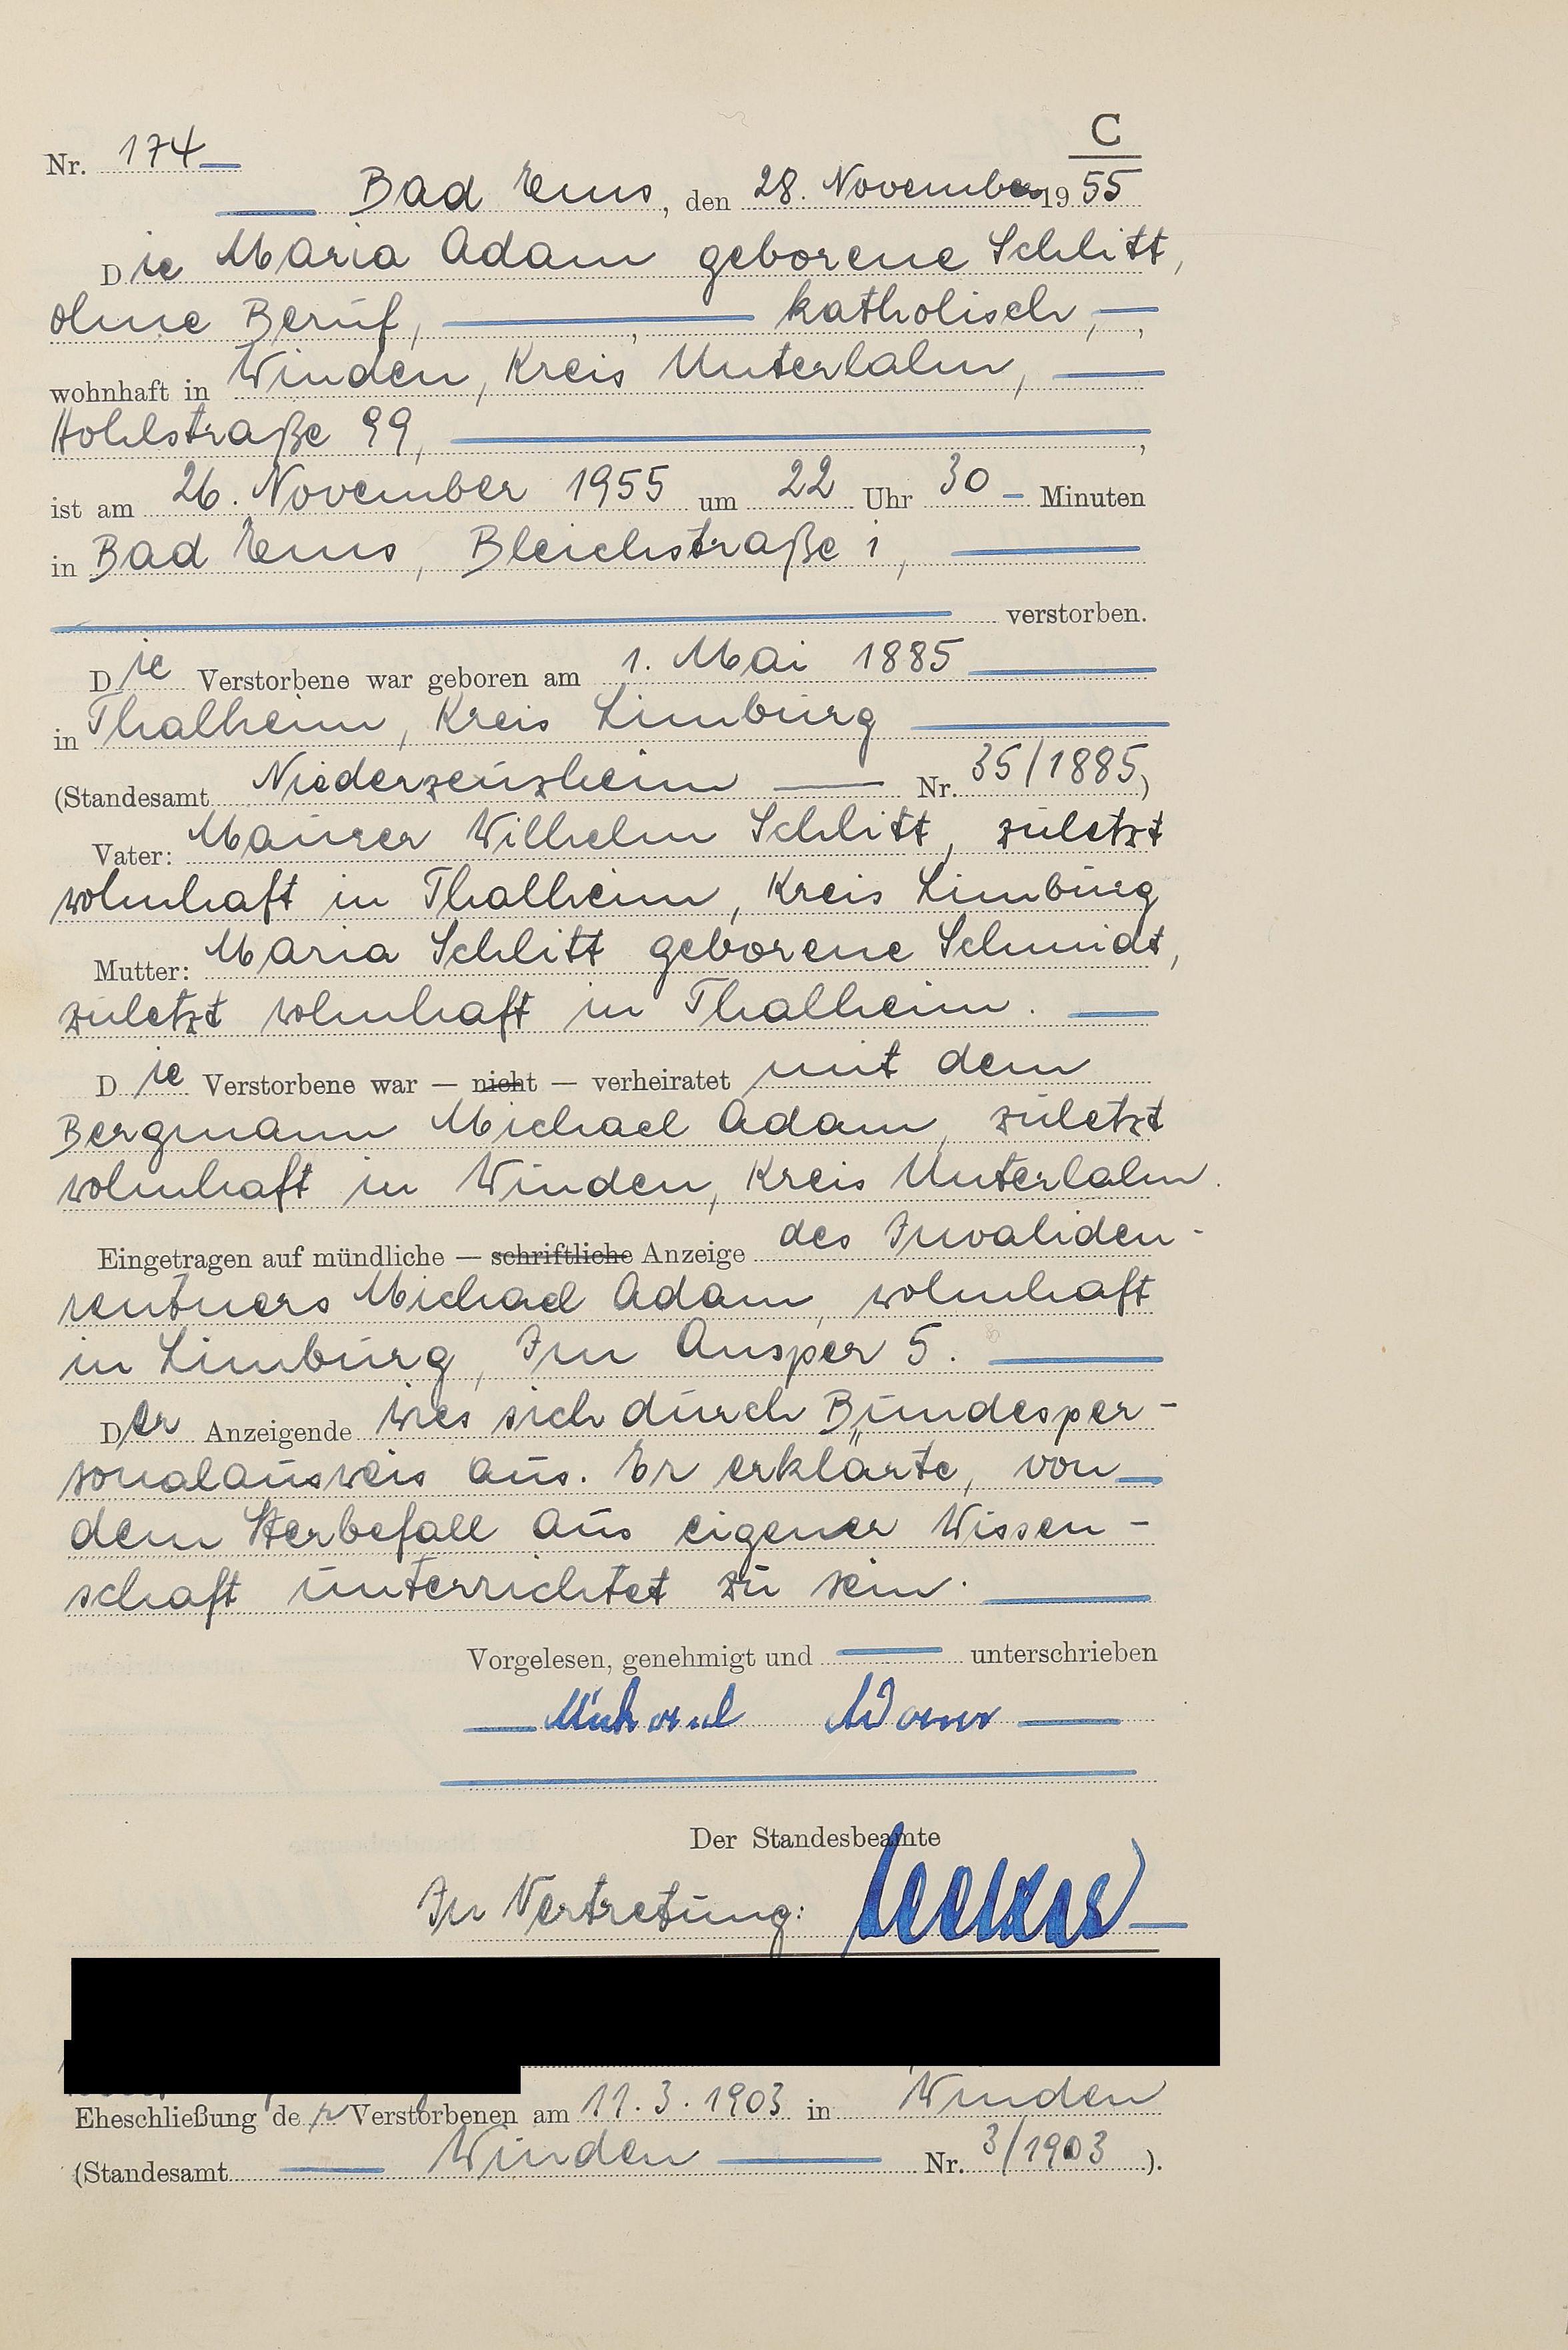 C
Nr. 174
Bad Ems, den 28. November 1955
Die Maria Adam geborene Schlitt,
ohne Beruf, , katholisch, ,
wohnhaft in Winden, Kreis Unterlahn,
Hohlstraße 99, ,
ist am 26. November 1955 um 22 Uhr 30 Minuten
in Bad Ems, Bleichstraße 1,
verstorben.
Die Verstorbene war geboren am 1. Mai 1885
in Thalheim, Kreis Limburg
(Standesamt Niederzeuzheim Nr. 35/1885)
Vater: Maurer Wilhelm Schlitt, zuletzt
wohnhaft in Thalheim, Kreis Limburg
Mutter: Maria Schlitt geborene Schmidt,
zuletzt wohnhaft in Thalheim.
Die Verstorbene war — nicht — verheiratet mit dem
Bergmann Michael Adam, zuletzt
wohnhaft in Winden, Kreis Unterlahn.
Eingetragen auf mündliche — schriftliche Anzeige des Invaliden-
rentners Michael Adam, wohnhaft
in Limburg, Im Ansper 5.
Der Anzeigende wies sich durch Bundesper-
sonalausweis aus. Er erklärte, von
dem Sterbefall aus eigener Wissen-
schaft unterrichtet zu sein.
Vorgelesen, genehmigt und unterschrieben
Michael Adam
Der Standesbeamte
In Vertretung:
Eheschließung der Verstorbenen am 11.3.1903 in Winden
(Standesamt Winden Nr. 3/1903).